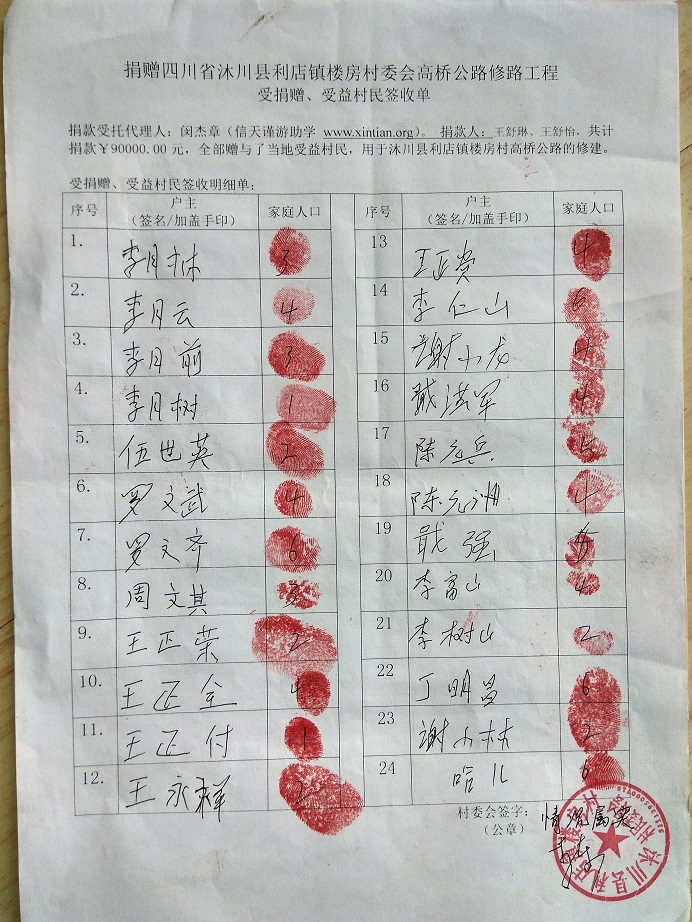 捐赠四川省沐川县利店镇楼房村委会高桥公路修路工程
受捐赠、受益村民签收单
捐款受托代理人：闵杰章（信天谨游助学 www.xintian.org）。 捐款人：王舒琳、王舒怡，共计
捐款￥90000.00 元，全部赠与了当地受益村民，用于沐川县利店镇楼房村高桥公路的修建。
受捐赠、受益村民签收明细单：
序号 户主（签名/加盖手印） 家庭人口 序号 户主（签名/加盖手印） 家庭人口
1. 李月林 3 13 王正贵 4
2. 李月云 4 14 李仁山 6
3. 李月前 3 15 谢小龙 4
4. 李月树 1 16 戢洪军 4
5. 伍世英 2 17 陈元兵 5
6. 罗文武 4 18 陈元洲 4
7. 罗文齐 6 19 戢强
8. 周文其 3 20 李富山 4
9. 王正荣 2 21 李树山 2
10. 王正全 4 22 丁明昌 6
11. 王正付 1 23 谢小林 2
12. 王永祥 2 24 哈儿 6
村委会签字：
（公章）
情况属实
沐川县利店镇楼房村村民委员会